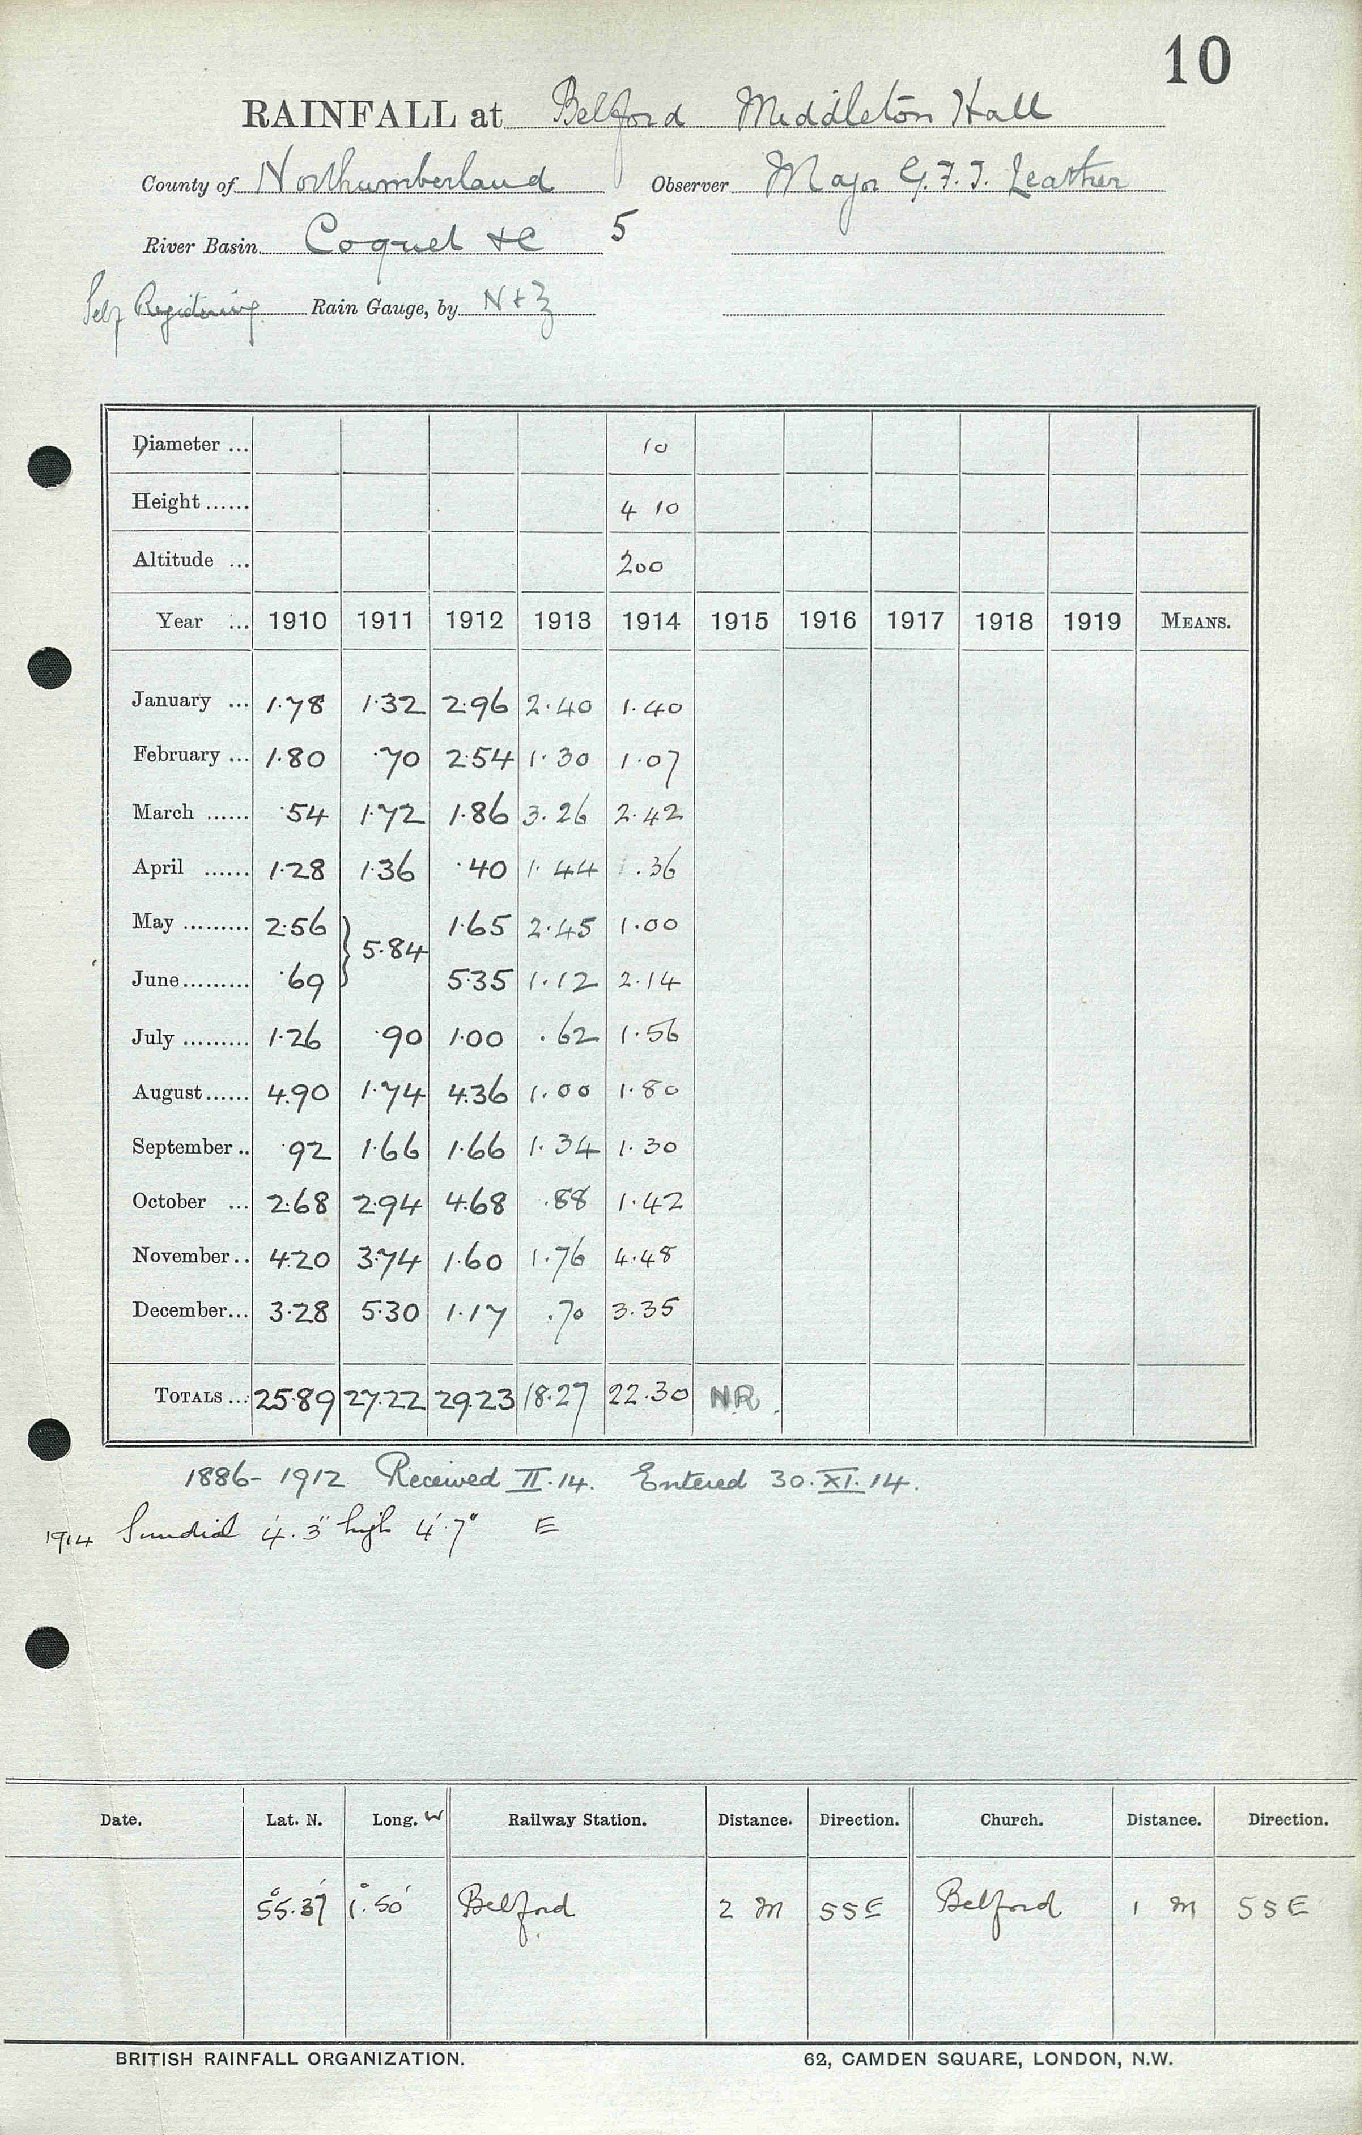 10
RAINFALL at Belford Middleton Hall
County of Northumberland Observer Major G.F.T. Leather
River Basin Coquet &c 5
Self Registering Rain Gauge, by N & Z
Diameter ... 10
Height ...... 4 10
Altitude ... 200
Year ... 1910 1911 1912 1913 1914 1915 1916 1917 1918 1919 MEANS.
January ... 1.78 1.32 2.96 2.40 1.40
February ... 1.80 .70 2.54 1.30 1.07
March ...... .54 1.72 1.86 3.26 2.42
April ...... 1.28 1.36 .40 1.44 .36
May ......... 2.56 } 5.84 1.65 2.45 1.00
June......... .69 5.35 1.12 2.14
July ......... 1.26 .90 1.00 .62 1.56
August...... 4.90 1.74 4.36 1.00 1.80
September .. .92 1.66 1.66 1.34 1.30
October ... 2.68 2.94 4.68 .88 1.42
November .. 4.20 3.74 1.60 1.76 4.48
December... 3.28 5.30 1.17 .70 3.35
TOTALS ... 25.89 27.22 29.23 18.27 22.30 NR.
1886-1912 Received II.14. Entered 30.XI.14.
1914 Sundial 4'.3" high 4'.7" E
Date. Lat. N. Long. W Railway Station. Distance. Direction. Church. Distance. Direction.
55°.37' 1°.50' Belford 2 M SSE Belford 1 M SSE
BRITISH RAINFALL ORGANIZATION. 62, CAMDEN SQUARE, LONDON, N.W.